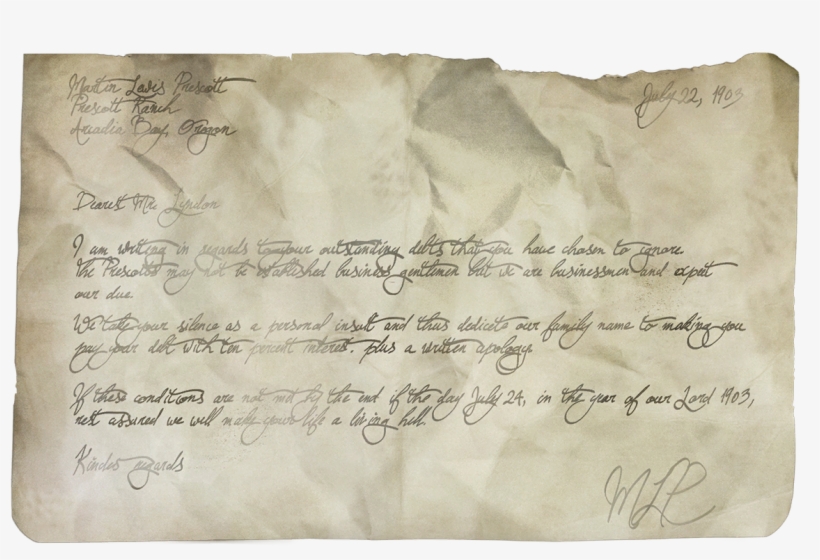 Martin Lewis Prescott
Prescott Ranch
Arcadia Bay, Oregon
July 22, 1903
Dearest Mr. Lyndon
I am writing in regards to your outstanding debts that you have chosen to ignore.
The Prescotts may not be established business gentlemen but we are businessmen and expect
our due.
We take your silence as a personal insult and thus dedicate our family name to making you
pay your debt with ten percent interest. plus a written apology.
If these conditions are not met by the end if the day July 24, in the year of our Lord 1903,
rest assured we will make your life a living hell.
Kindest regards
MLP